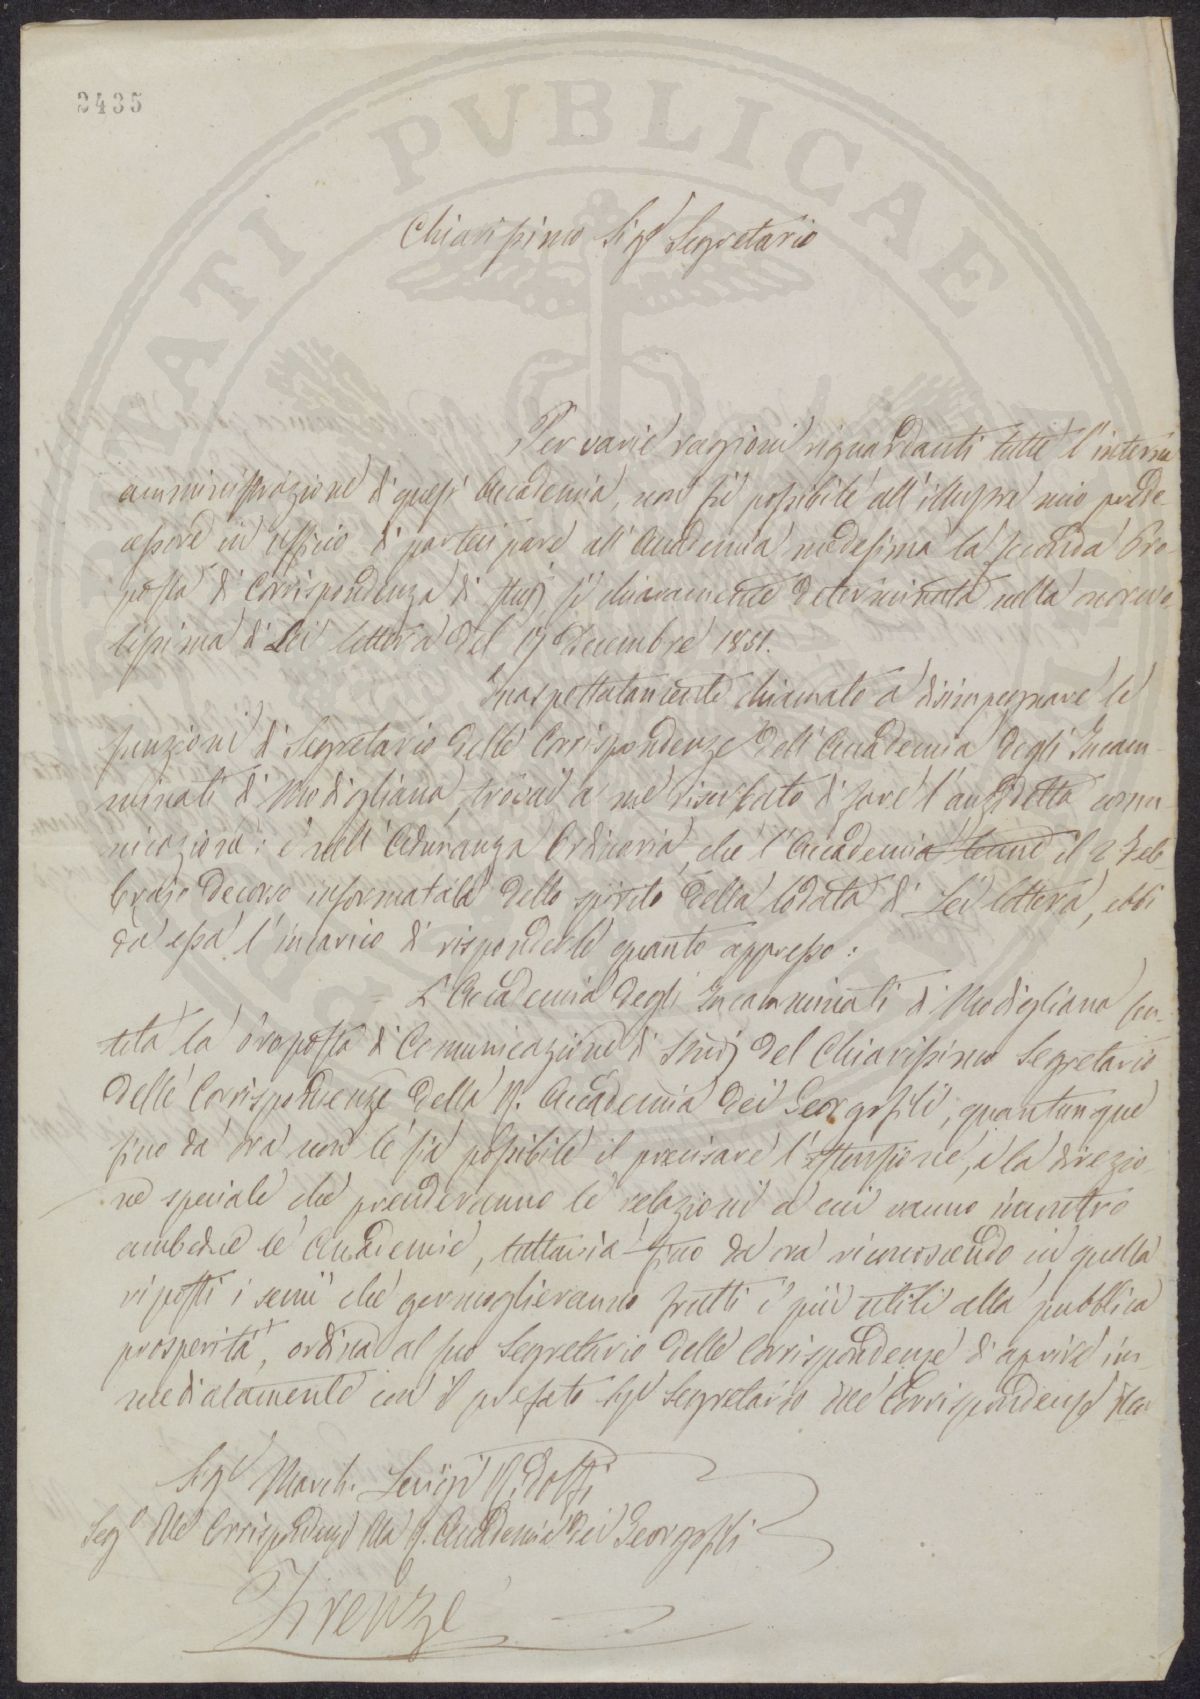 2435
PROSPERITATI PVBLICAE AVGENDAE
Chiarissimo Sigr Segretario
Per varie ragioni riguardanti tutte l'interna
amministrazione di quest'Accademia, non fù possibile all'illustre mio prede-
cessore in ufficio di partecipare all'Accademia medesima la seconda Pro-
posta di Corrispondenza di Studj sì chiaramente determinata nella
lissima di Lei lettera del 17 Decembre 1851.
Inaspettatamente chiamato a disimpegnare le
funzioni di Segretario delle Corrispondenze dell'Accademia degli Incam-
minati di Modigliana, trovai a me riserbato di fare l'anzidetta comu-
nicazione: e nell'Adunanza Ordinaria, che l'Accademia tenne il 2 Feb-
brajo decorso informatala dello spirito della lodata di Lei lettera, ebbi
da essa l'incarico di risponderle quanto appresso:
L'Accademia degli Incamminati di Modigliana sen-
tita la proposta di Comunicazione di Studj del Chiarissimo Segretario
delle Corrispondenze della R. Accademia dei Georgofili, quantunque
fino da ora non le sia possibile il precisare l'estensione, e la direzio-
ne speciale che prenderanno le relazioni a cui vanno incontro
ambedue le Accademie, tuttavia fino da ora riconoscendo in quella
riposti i semi che germoglieranno frutti i più utili alla pubblica
prosperità, ordina al suo Segretario delle Corrispondenze di aprire im-
mediatamente con il prefato Sigr Segretario delle Corrispondenze della
Sigr March. Luigi Ridolfi
Segrio delle Corrispondenze della R. Accademia dei Georgofili
Firenze